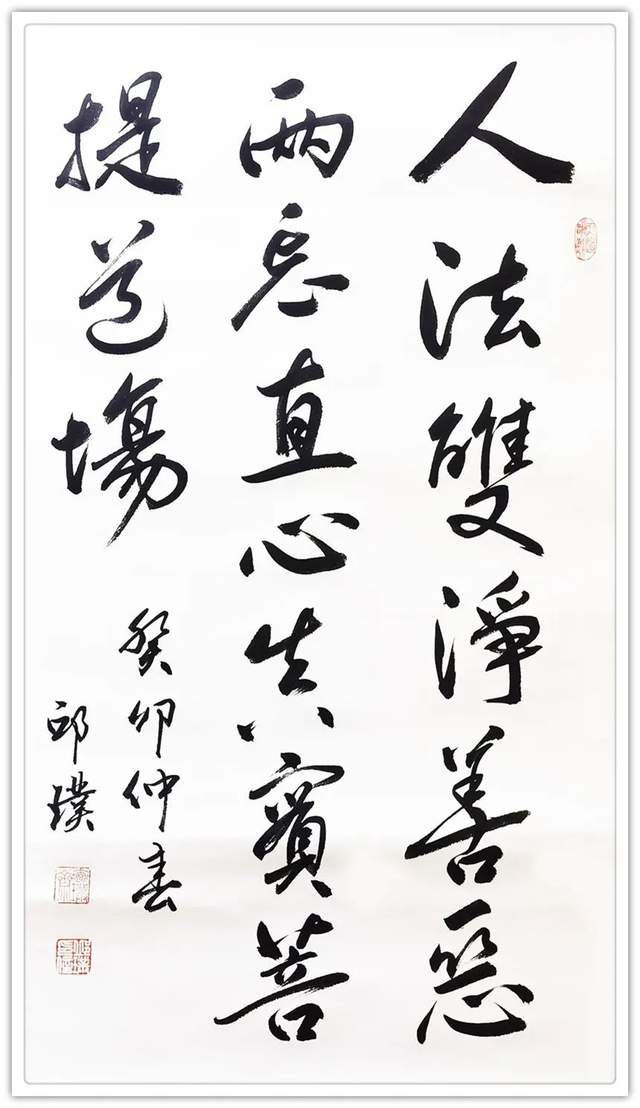 人法雙淨善惡
兩忘直心真實菩
提道場
癸卯仲春
邱璞